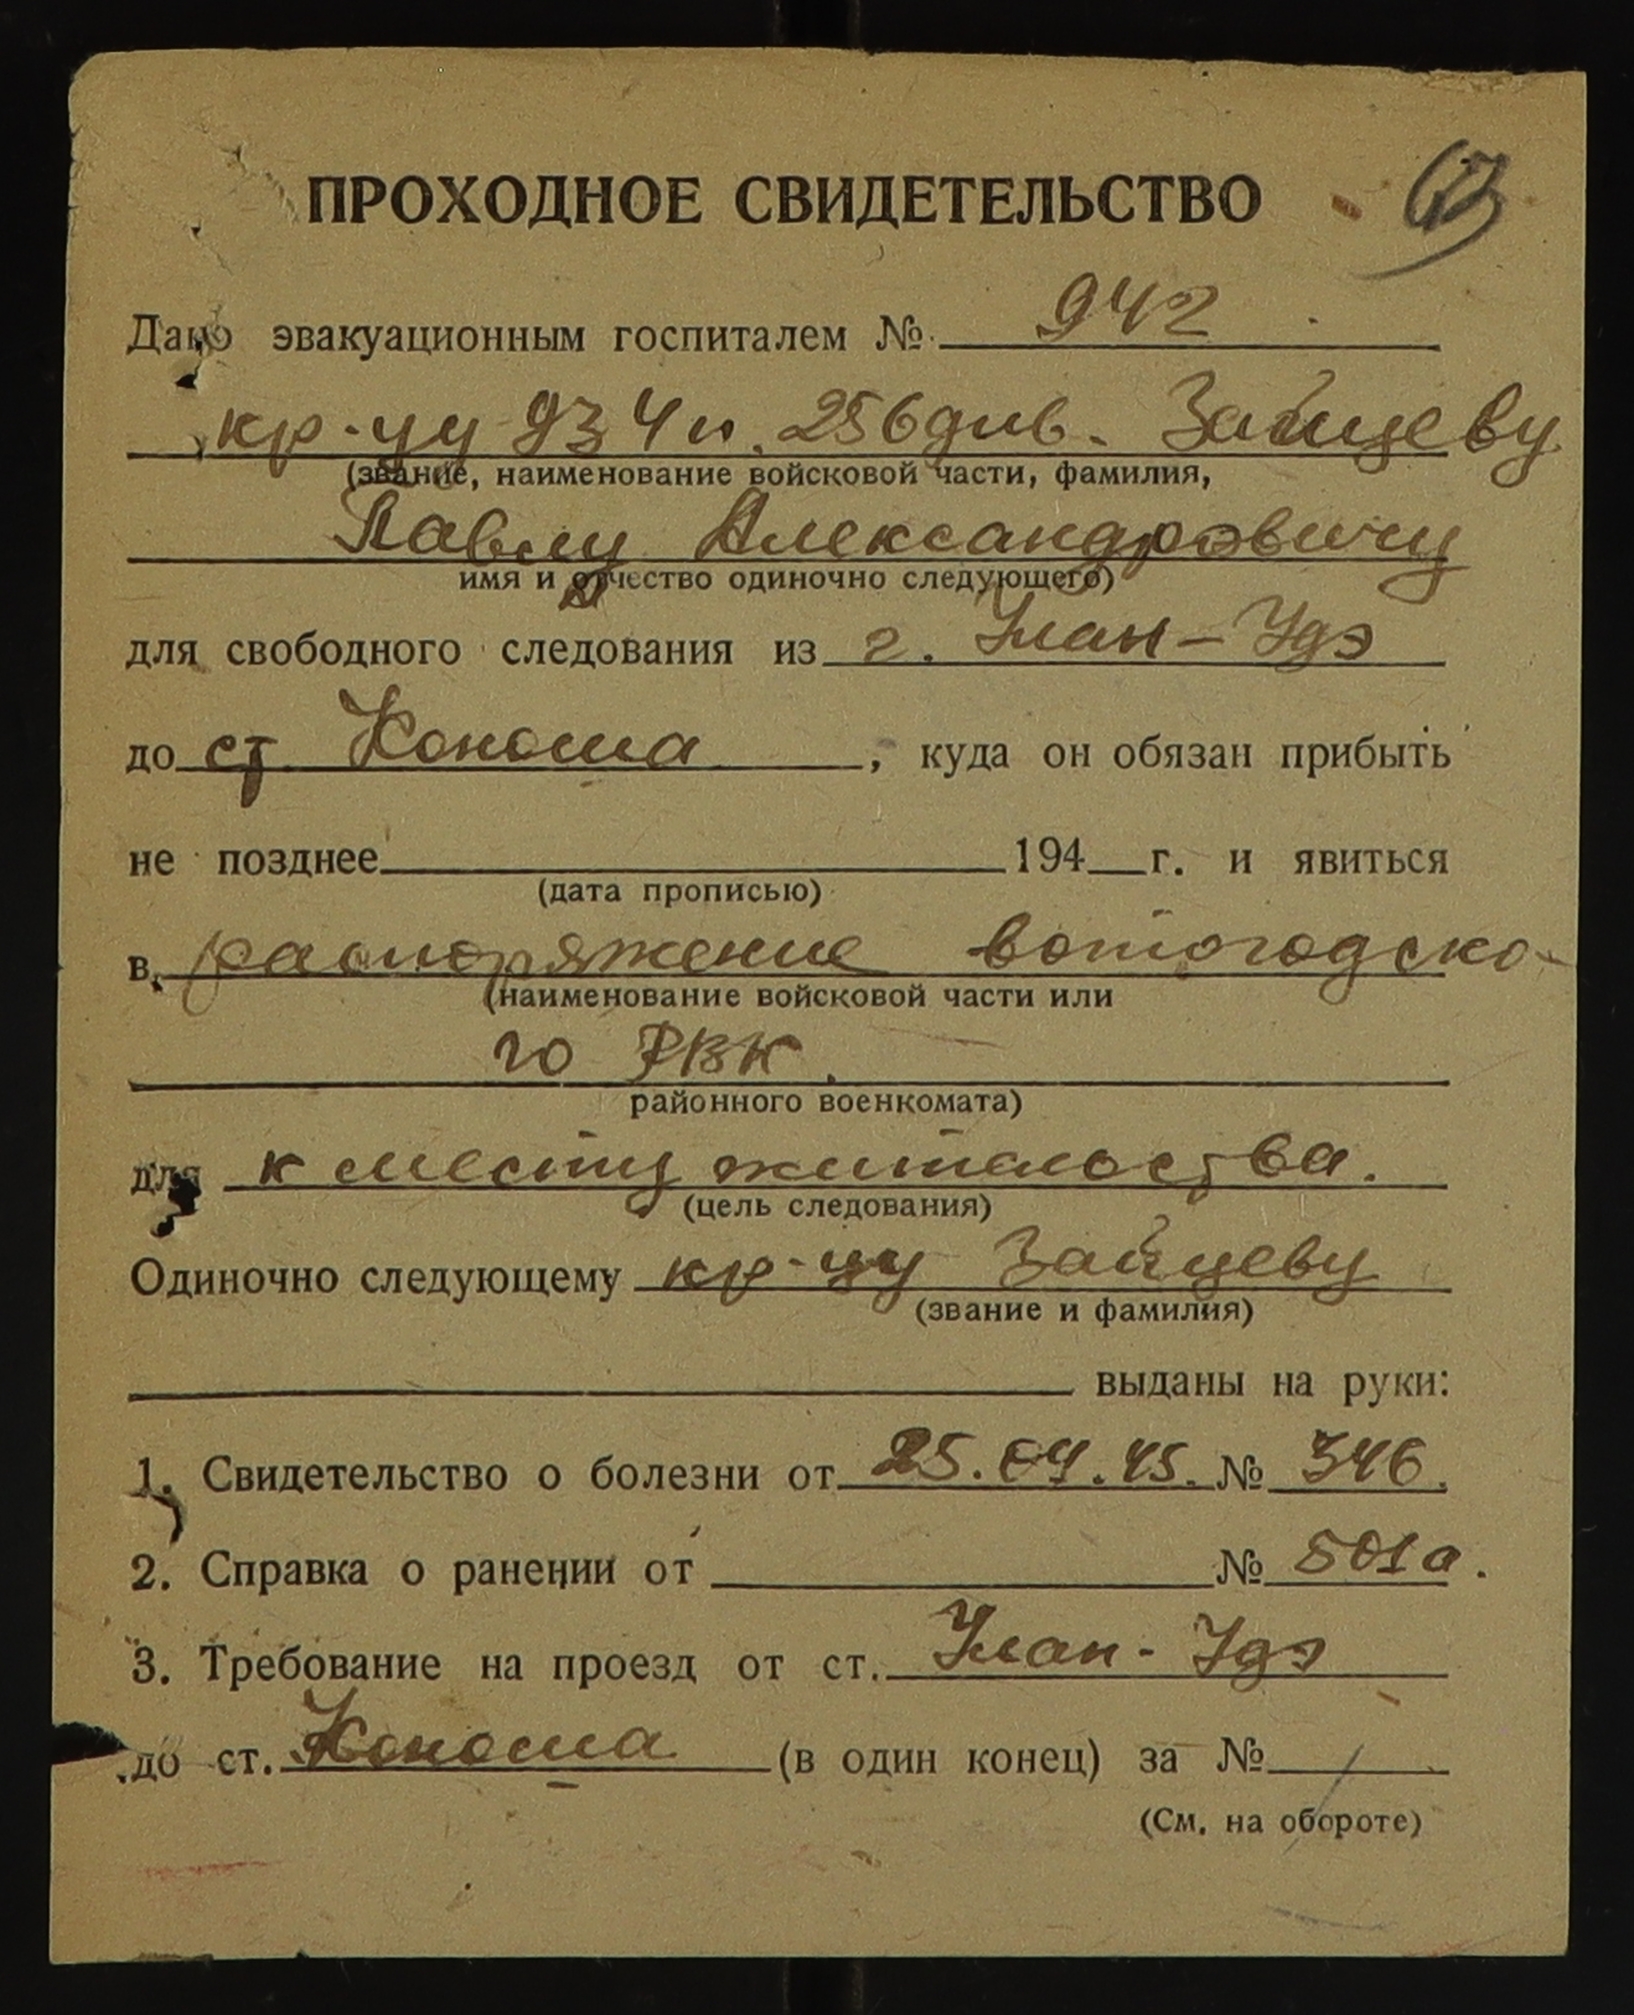 ПРОХОДНОЕ СВИДЕТЕЛЬСТВО
Дано эвакуационным госпиталем № 942
кр-цу 934 п. 256 див. Зайцеву
(звание, наименование войсковой части, фамилия,
Павлу Александровичу
имя и отчество одиночно следующего)
для свободного следования из г. Улан-Удэ
до ст Коноша, куда он обязан прибыть
не позднее 194 г. и явиться
в распоряжение
(наименование войсковой части или
го РВК.
районного военкомата)
для к месту жительства.
(цель следования)
Одиночно следующему кр-цу Зайцеву
(звание и фамилия)
выданы на руки:
1. Свидетельство о болезни от 25.04.45. № 346.
2. Справка о ранении от № 501а.
3. Требование на проезд от ст. Улан-Удэ
до ст. Коноша (в один конец) за №
(См. на обороте)